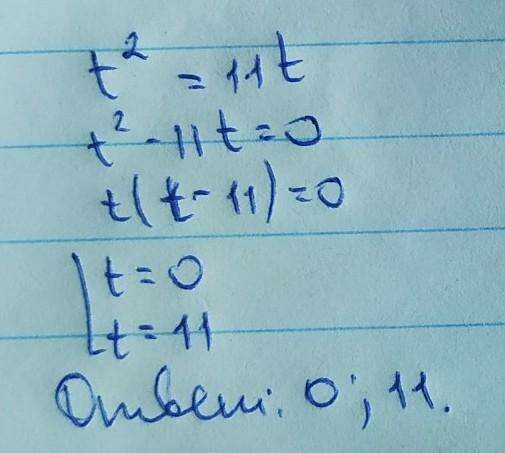 t² = 11t
t² - 11t = 0
t(t - 11) = 0
[t = 0
t = 11
Ответ: 0; 11.